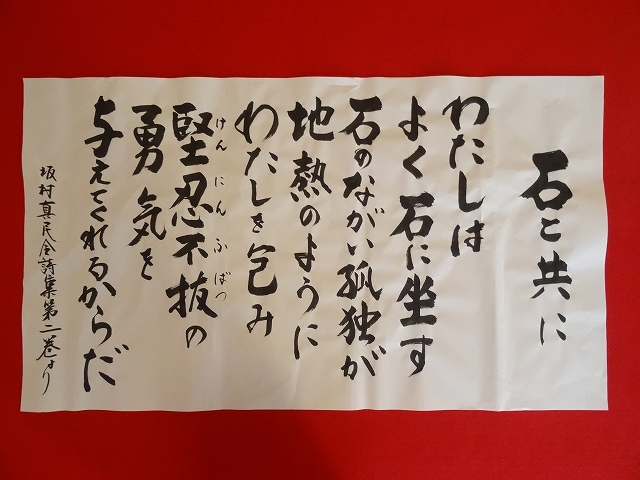 石と共に
わたしは
よく石に坐す
石のながい孤独が
地熱のように
わたしを包み
堅忍不抜の
けんにんふばつ
勇気を
与えてくれるからだ
坂村真民全詩集第二巻より